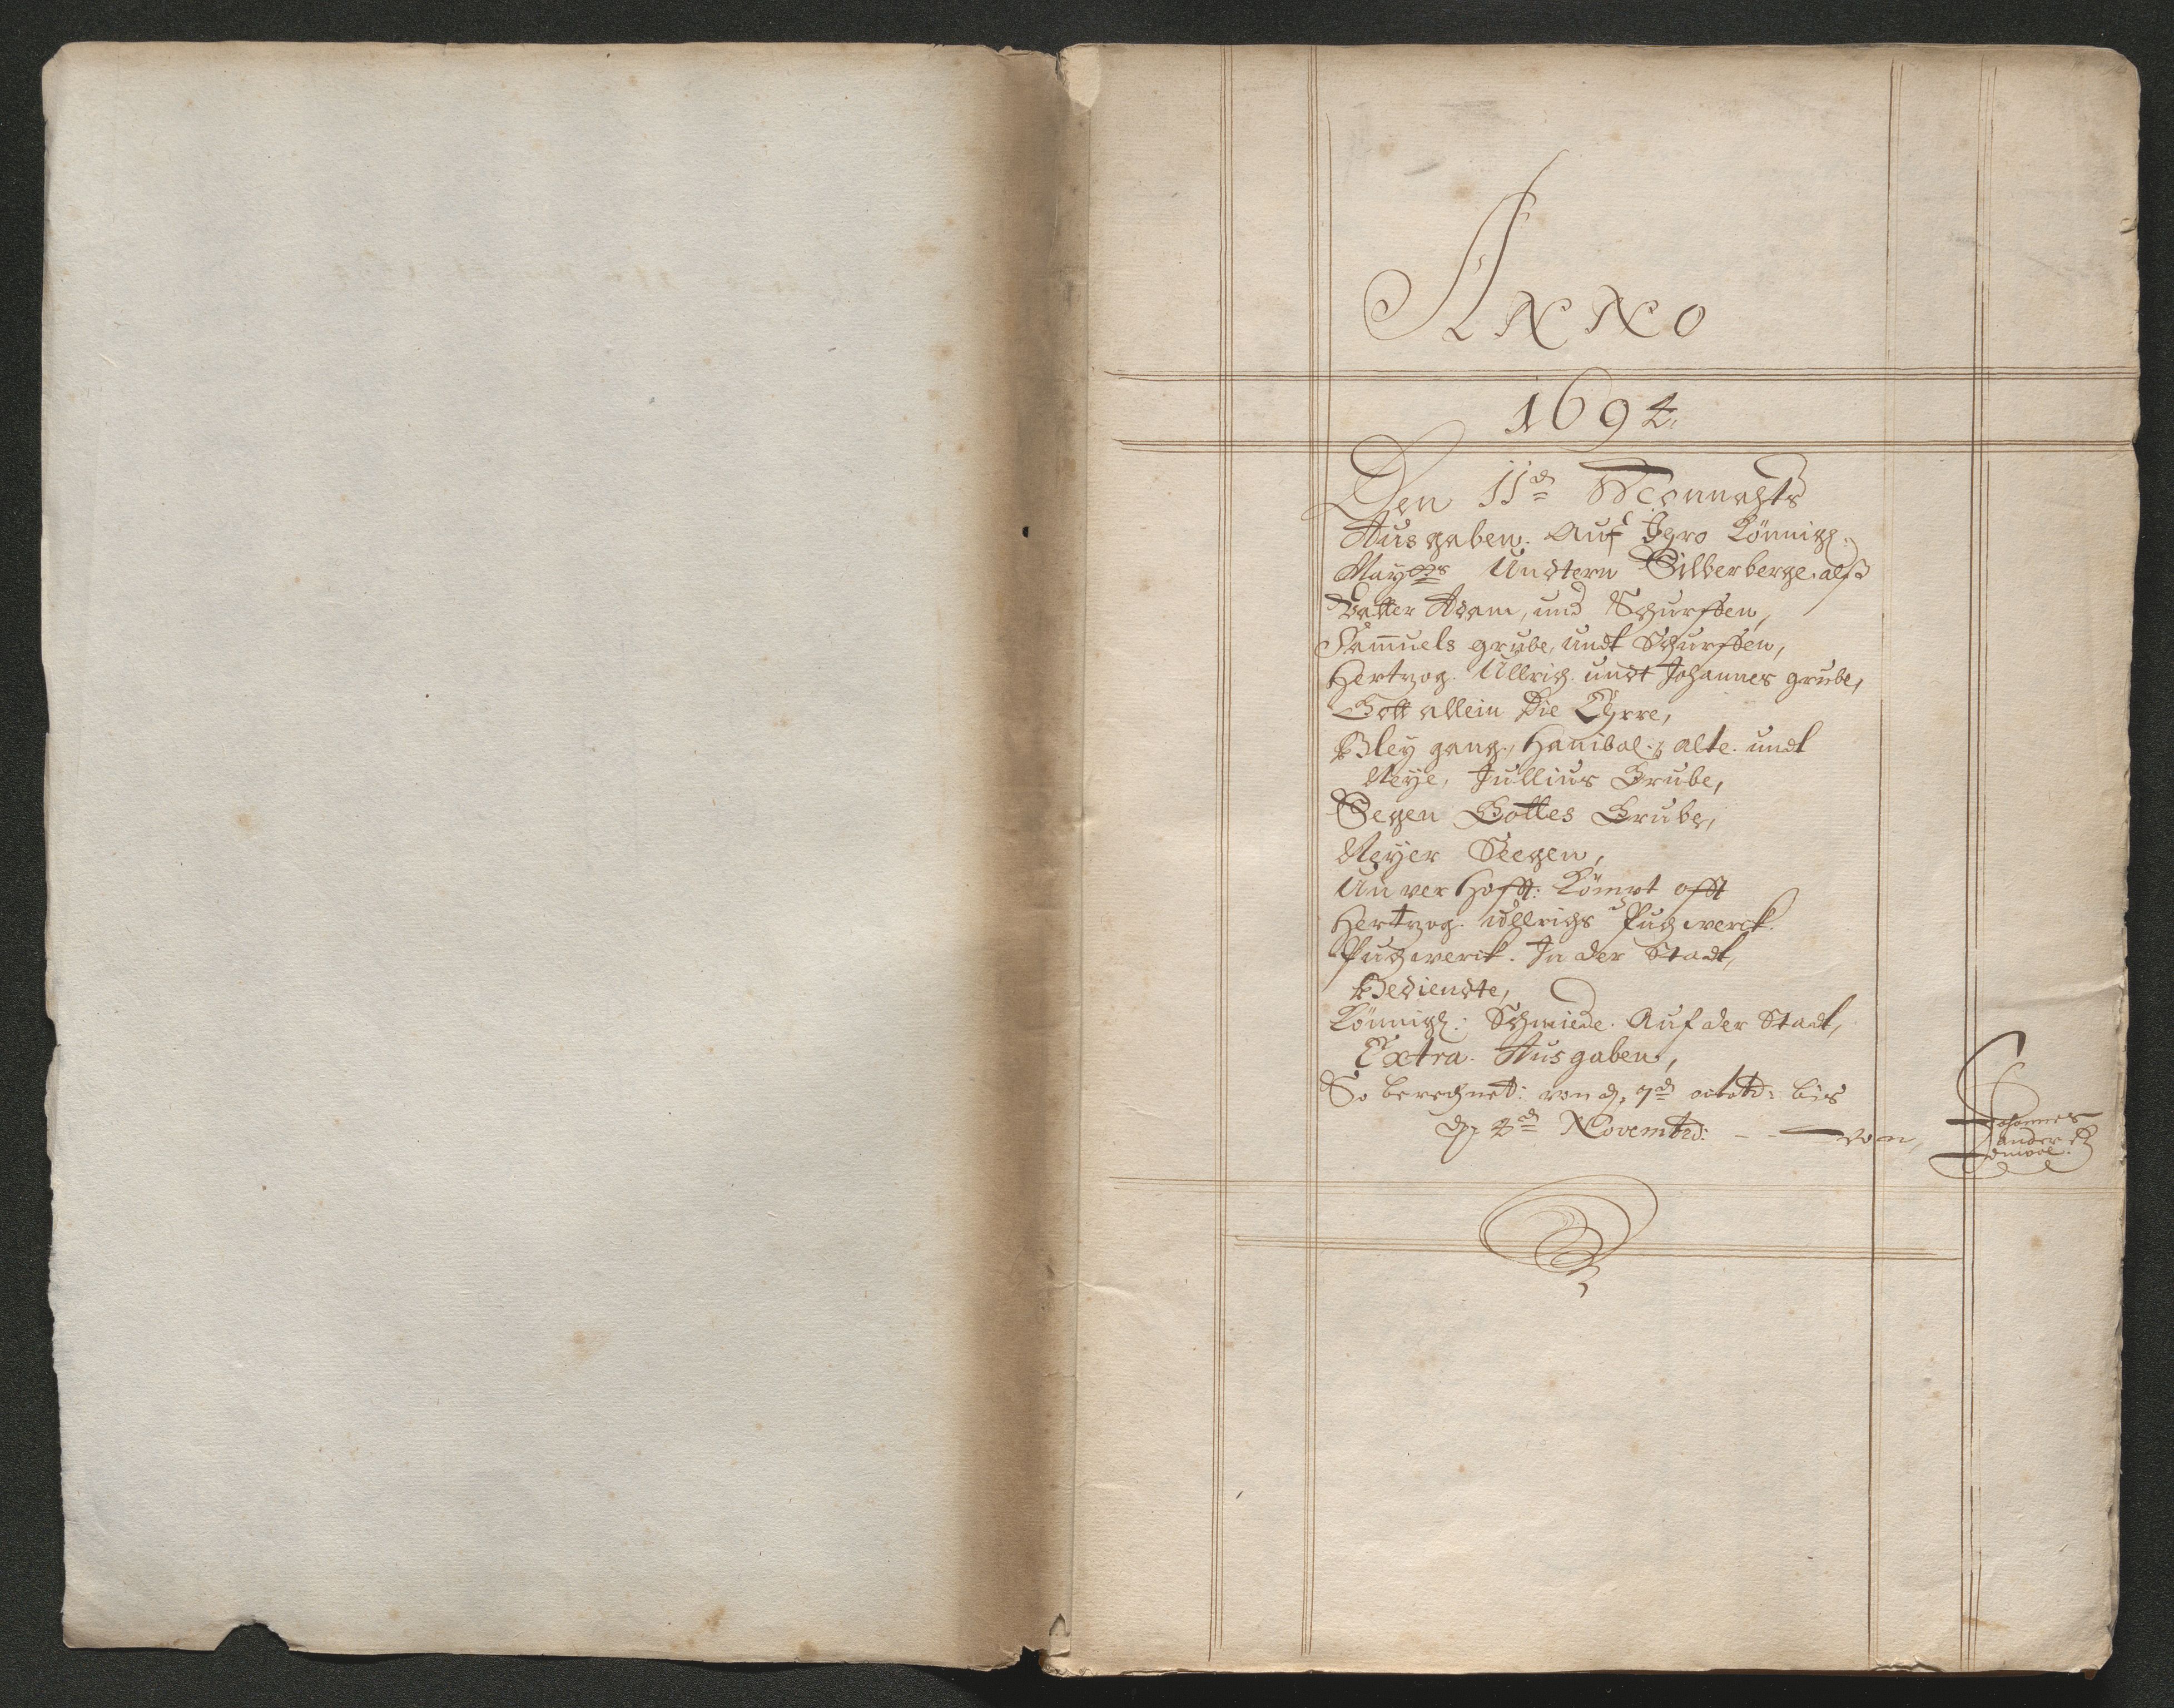 Anno
1694.
Den 11d Vermachts
Ausgaben. Auf Ihro Königl:
Mayestt Undtern Silberberge. alß
Vatter Adam, und Schurffen,
Samuels grube, undt Schurffen,
Hertzog. Ullrich. undt Johannes grube,
Gott allein Die Ehrre,
Bley gang., Hanibal. alte. undt
Neye, Jullius Grube,
Segen Gottes Grube,
Neyer Seegen,
Unverhofft: Kömpt offt
Hertzog. Ullrichs Puchwerck.
Puchwerck. In der Stadt,
Bediendte,
Königl: Schmiede. Auf der Stadt,
Extra. Ausgaben,
So berechnet: von d. 7d octobr: bis
d. 3d Novembr: - - von,
Johannes